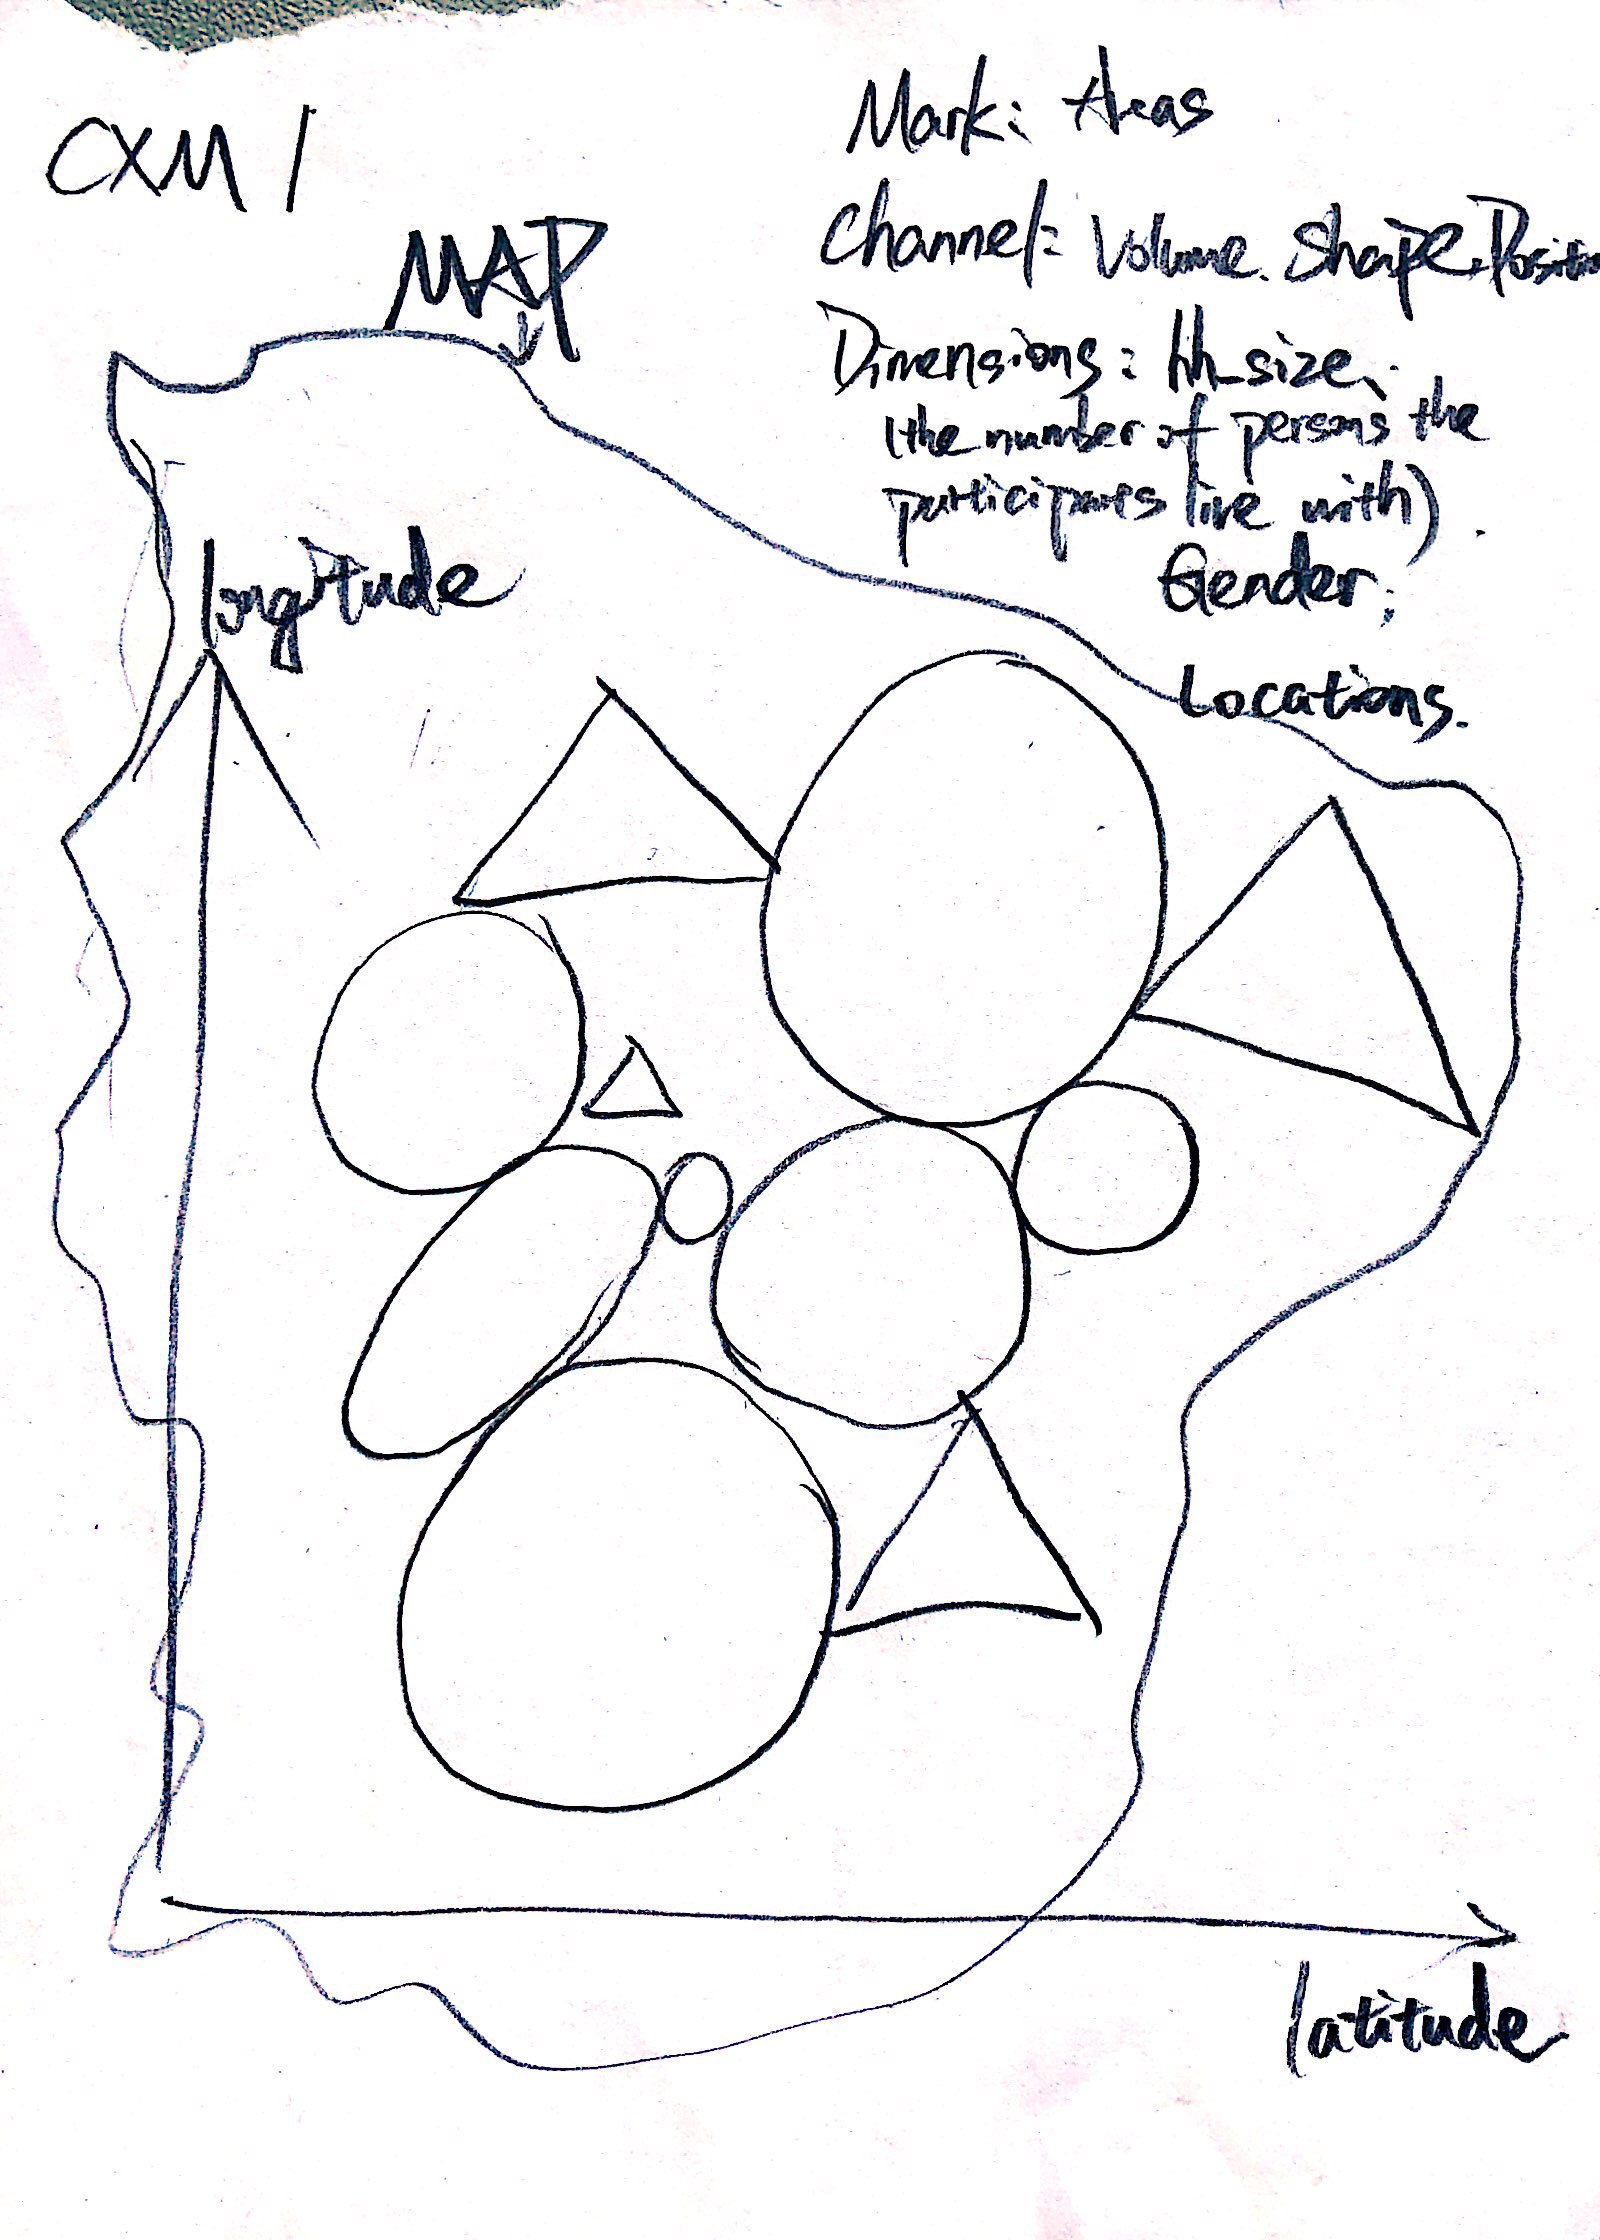 CXM 1
MAP
Mark: Areas
Channel: Volume. Shape. Position
Dimensions: hh_size.
(the number of persons the
participants live with).
Gender;
Locations.
longitude
latitude